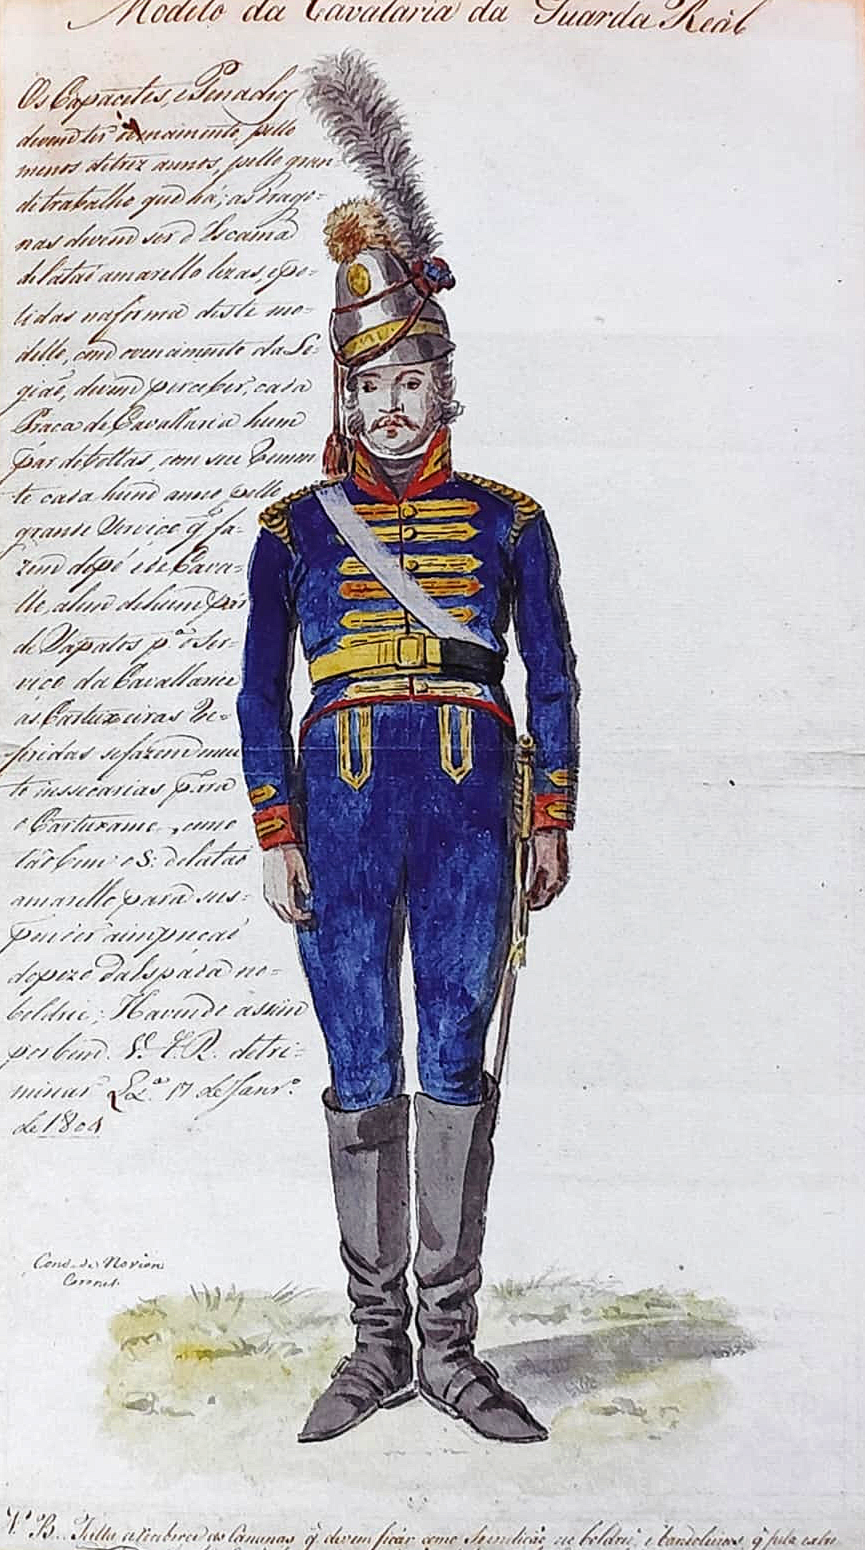 Modelo da Cavalaria da Guarda Real
Os Capacetes, e Penachos
devem ter vencimento, pello
menos de trez annos, pello gran
de trabalho que há; as Drago-
nas devem ser d'Escama
de lataõ amarello lizas, e po-
lidas na forma deste mo-
dello, com o vencimento da Le-
giaõ, devem perceber, cada
Praca de Cavallaria hum
pár de bottas, com seu
te cada hum anno pello
grande Serviço q̃ fa-
zem de pé e de Cava-
llo, alem de hum par
de Sapatos pª o Ser-
viço da Cavallaria
as Cartuxeiras Re-
feridas se fazem mui
to nessecarias para
o Cartuxame, como
tãobem o S: de lataõ
amarello para sus-
pender
do pezo da Espáda no
boldrie; Havendo assim
por bem V. A. R. detri-
minar Lxª 17 de Janrº
de 1804
Conde de Novion
Coronel
N. B. Falta as Cananas q̃ devem ficar como no boldrié, e bandoleiras, q̃ pela